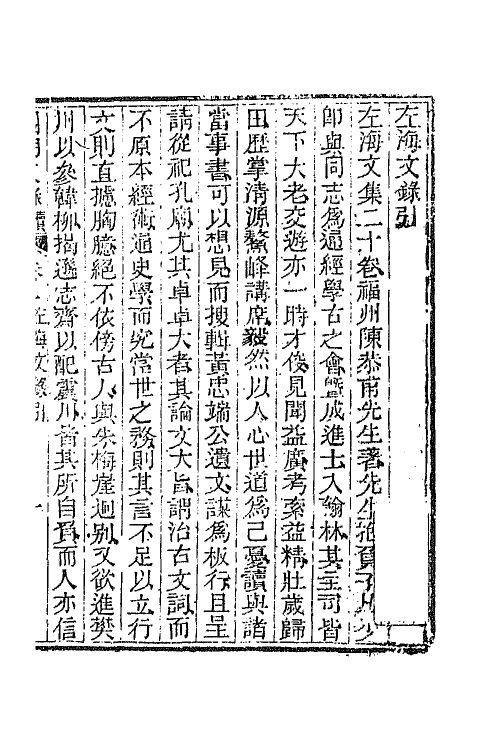 左海文錄引
左海文集二十卷福州陳恭甫先生著先生
卽與同志爲通經學古之會曁成進士入翰林其主司皆
天下大老交遊亦一時才俊見聞益廣考索益精壯歲歸
田歷掌清源鰲峰講席毅然以人心世道爲己憂讀與諸
當事書可以想見而搜輯黃忠端公遺文謀爲板行且呈
請從祀孔廟尤其卓卓大者其論文大旨謂治古文詞而
不原本經術通史學而究當世之務則其言不足以立行
文則直攄胸臆絕不依傍古人與朱梅崖迥別又欲進樊
川以參韓柳揭遜志齋以配震川皆其所自負而人亦信
左海文錄引 一